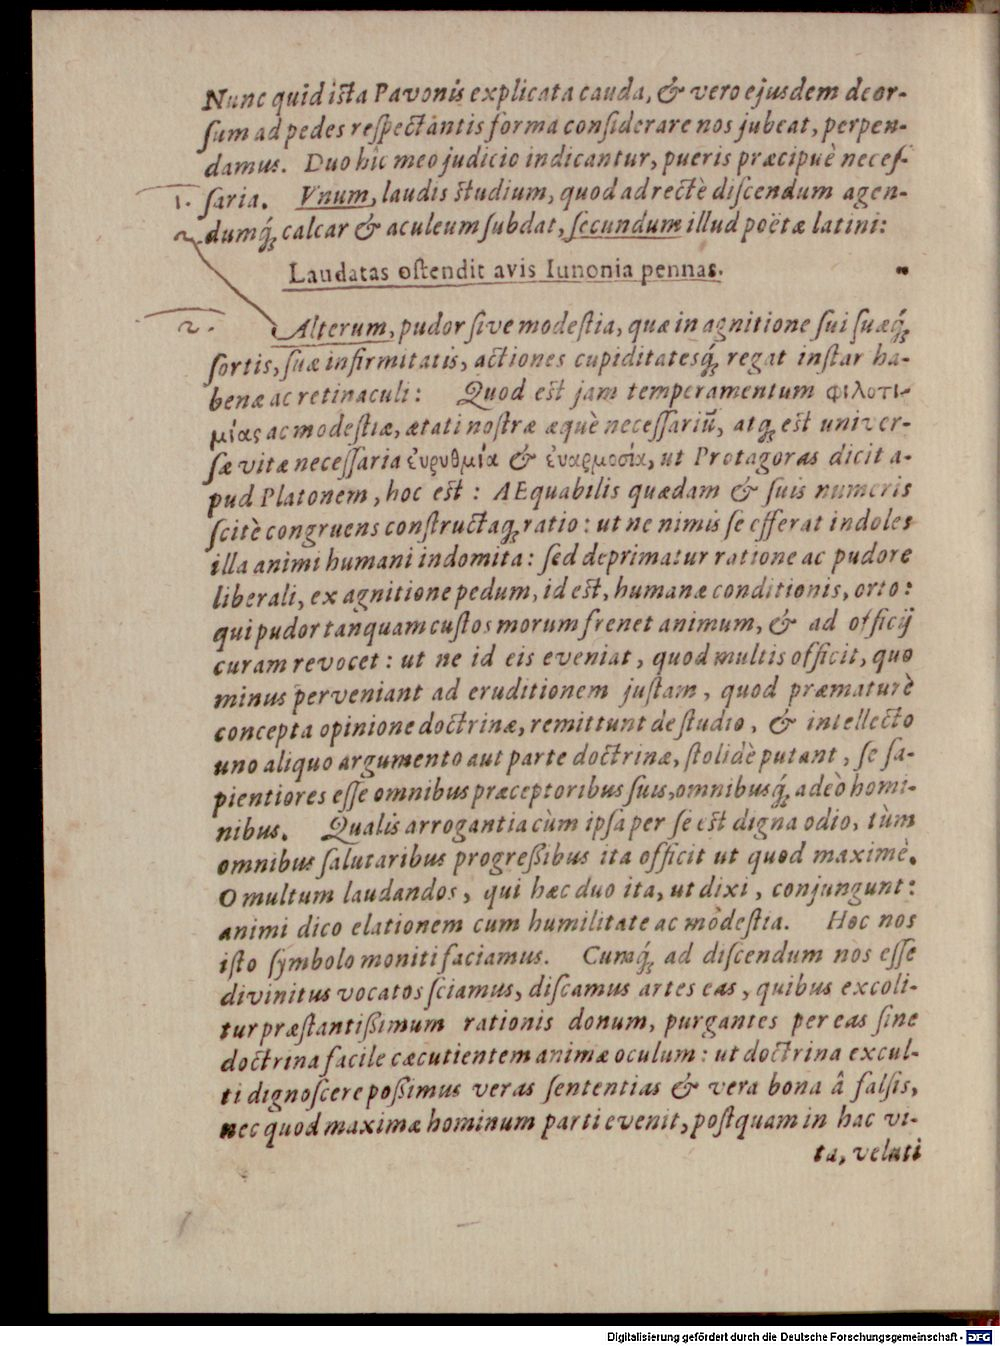 Nunc quid ista Pavonis explicata cauda, & vero ejusdem deor-
ſum ad pedes reſpectantis forma conſiderare nos jubeat, perpen-
damus. Duo hîc meo judicio indicantur, pueris præcipuè neceſ-
1. ſaria. Vnum, laudis ſtudium, quod ad rectè diſcendum agen-
2. dumq́; calcar & aculeum ſubdat, ſecundum illud poëtæ latini:
Laudatas oſtendit avis Iunonia pennas.
2. Alterum, pudor ſive modeſtia, quæ in agnitione ſui ſuæq́;
ſortis, ſuæ infirmitatis, actiones cupiditatesq́; regat inſtar ha-
benæ ac retinaculi: Quod est jam temperamentum φιλοτι-
μίας ac modeſtiæ, ætati noſtræ æquè neceſſariũ, atq; est univer-
ſæ vitæ neceſſaria ἐυρυθμία & ἐυαρμοσία, ut Protagoras dicit a-
pud Platonem, hoc est: AEquabilis quædam & ſuis numeris
ſcitè congruens conſtructaq; ratio: ut ne nimis ſe efferat indoles
illa animi humani indomita: ſed deprimatur ratione ac pudore
liberali, ex agnitione pedum, id est, humanæ conditionis, orto:
qui pudor tanquam cuſtos morum frenet animum, & ad officij
curam revocet: ut ne id eis eveniat, quod multis officit, quo
minus perveniant ad eruditionem juſtam, quod præmaturè
concepta opinione doctrinæ, remittunt de ſtudio, & intellecto
uno aliquo argumento aut parte doctrinæ, ſtolidè putant, ſe ſa-
pientiores eſſe omnibus præceptoribus ſuis, omnibusq́; adeò homi-
nibus. Qualis arrogantia cùm ipſa per ſe est digna odio, tùm
omnibus ſalutaribus progreßibus ita officit ut quod maximè.
O multum laudandos, qui hæc duo ita, ut dixi, conjungunt:
animi dico elationem cum humilitate ac modeſtia. Hoc nos
iſto ſymbolo moniti faciamus. Cumq́; ad diſcendum nos eſſe
divinitus vocatos ſciamus, diſcamus artes eas, quibus excoli-
tur præſtantißimum rationis donum, purgantes per eas ſine
doctrina facile cæcutientem animæ oculum: ut doctrina excul-
ti dignoſcere poßimus veras ſententias & vera bona â falſis,
nec quod maximæ hominum parti evenit, poſtquam in hac vi-
ta, veluti
Digitalisierung gefördert durch die Deutsche Forschungsgemeinschaft - DFG